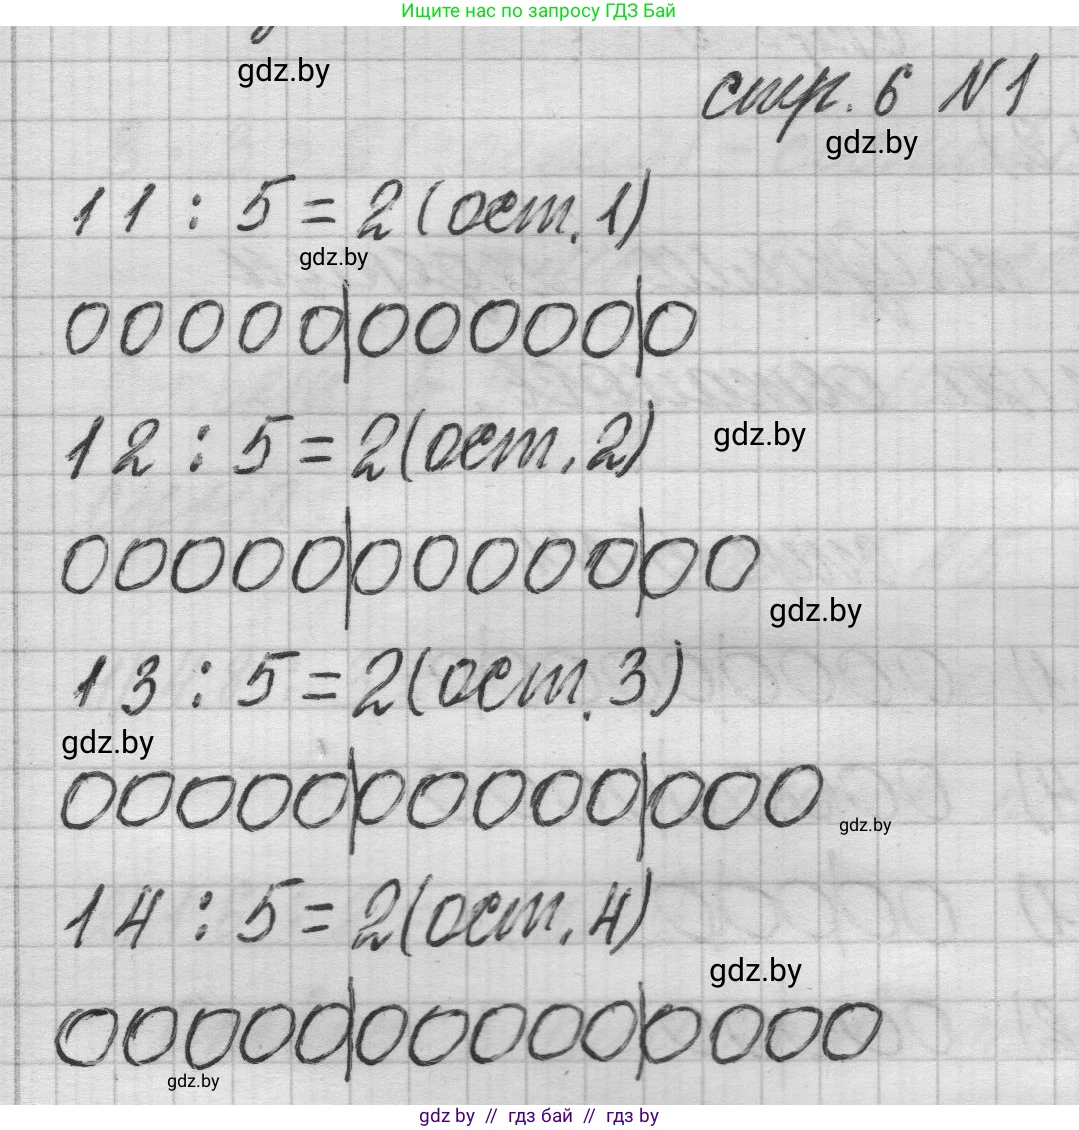 Ищите нас по запросу ГДЗ Бай
gdz.by
стр. 6 №1
gdz.by
11 : 5 = 2 (ост. 1)
gdz.by
00000|00000|0
12 : 5 = 2 (ост. 2)
gdz.by
00000|00000|00
gdz.by
13 : 5 = 2 (ост. 3)
gdz.by
00000|00000|000
gdz.by
14 : 5 = 2 (ост. 4)
gdz.by
00000|00000|0000
gdz.by
gdz by // гдз бай // гдз by